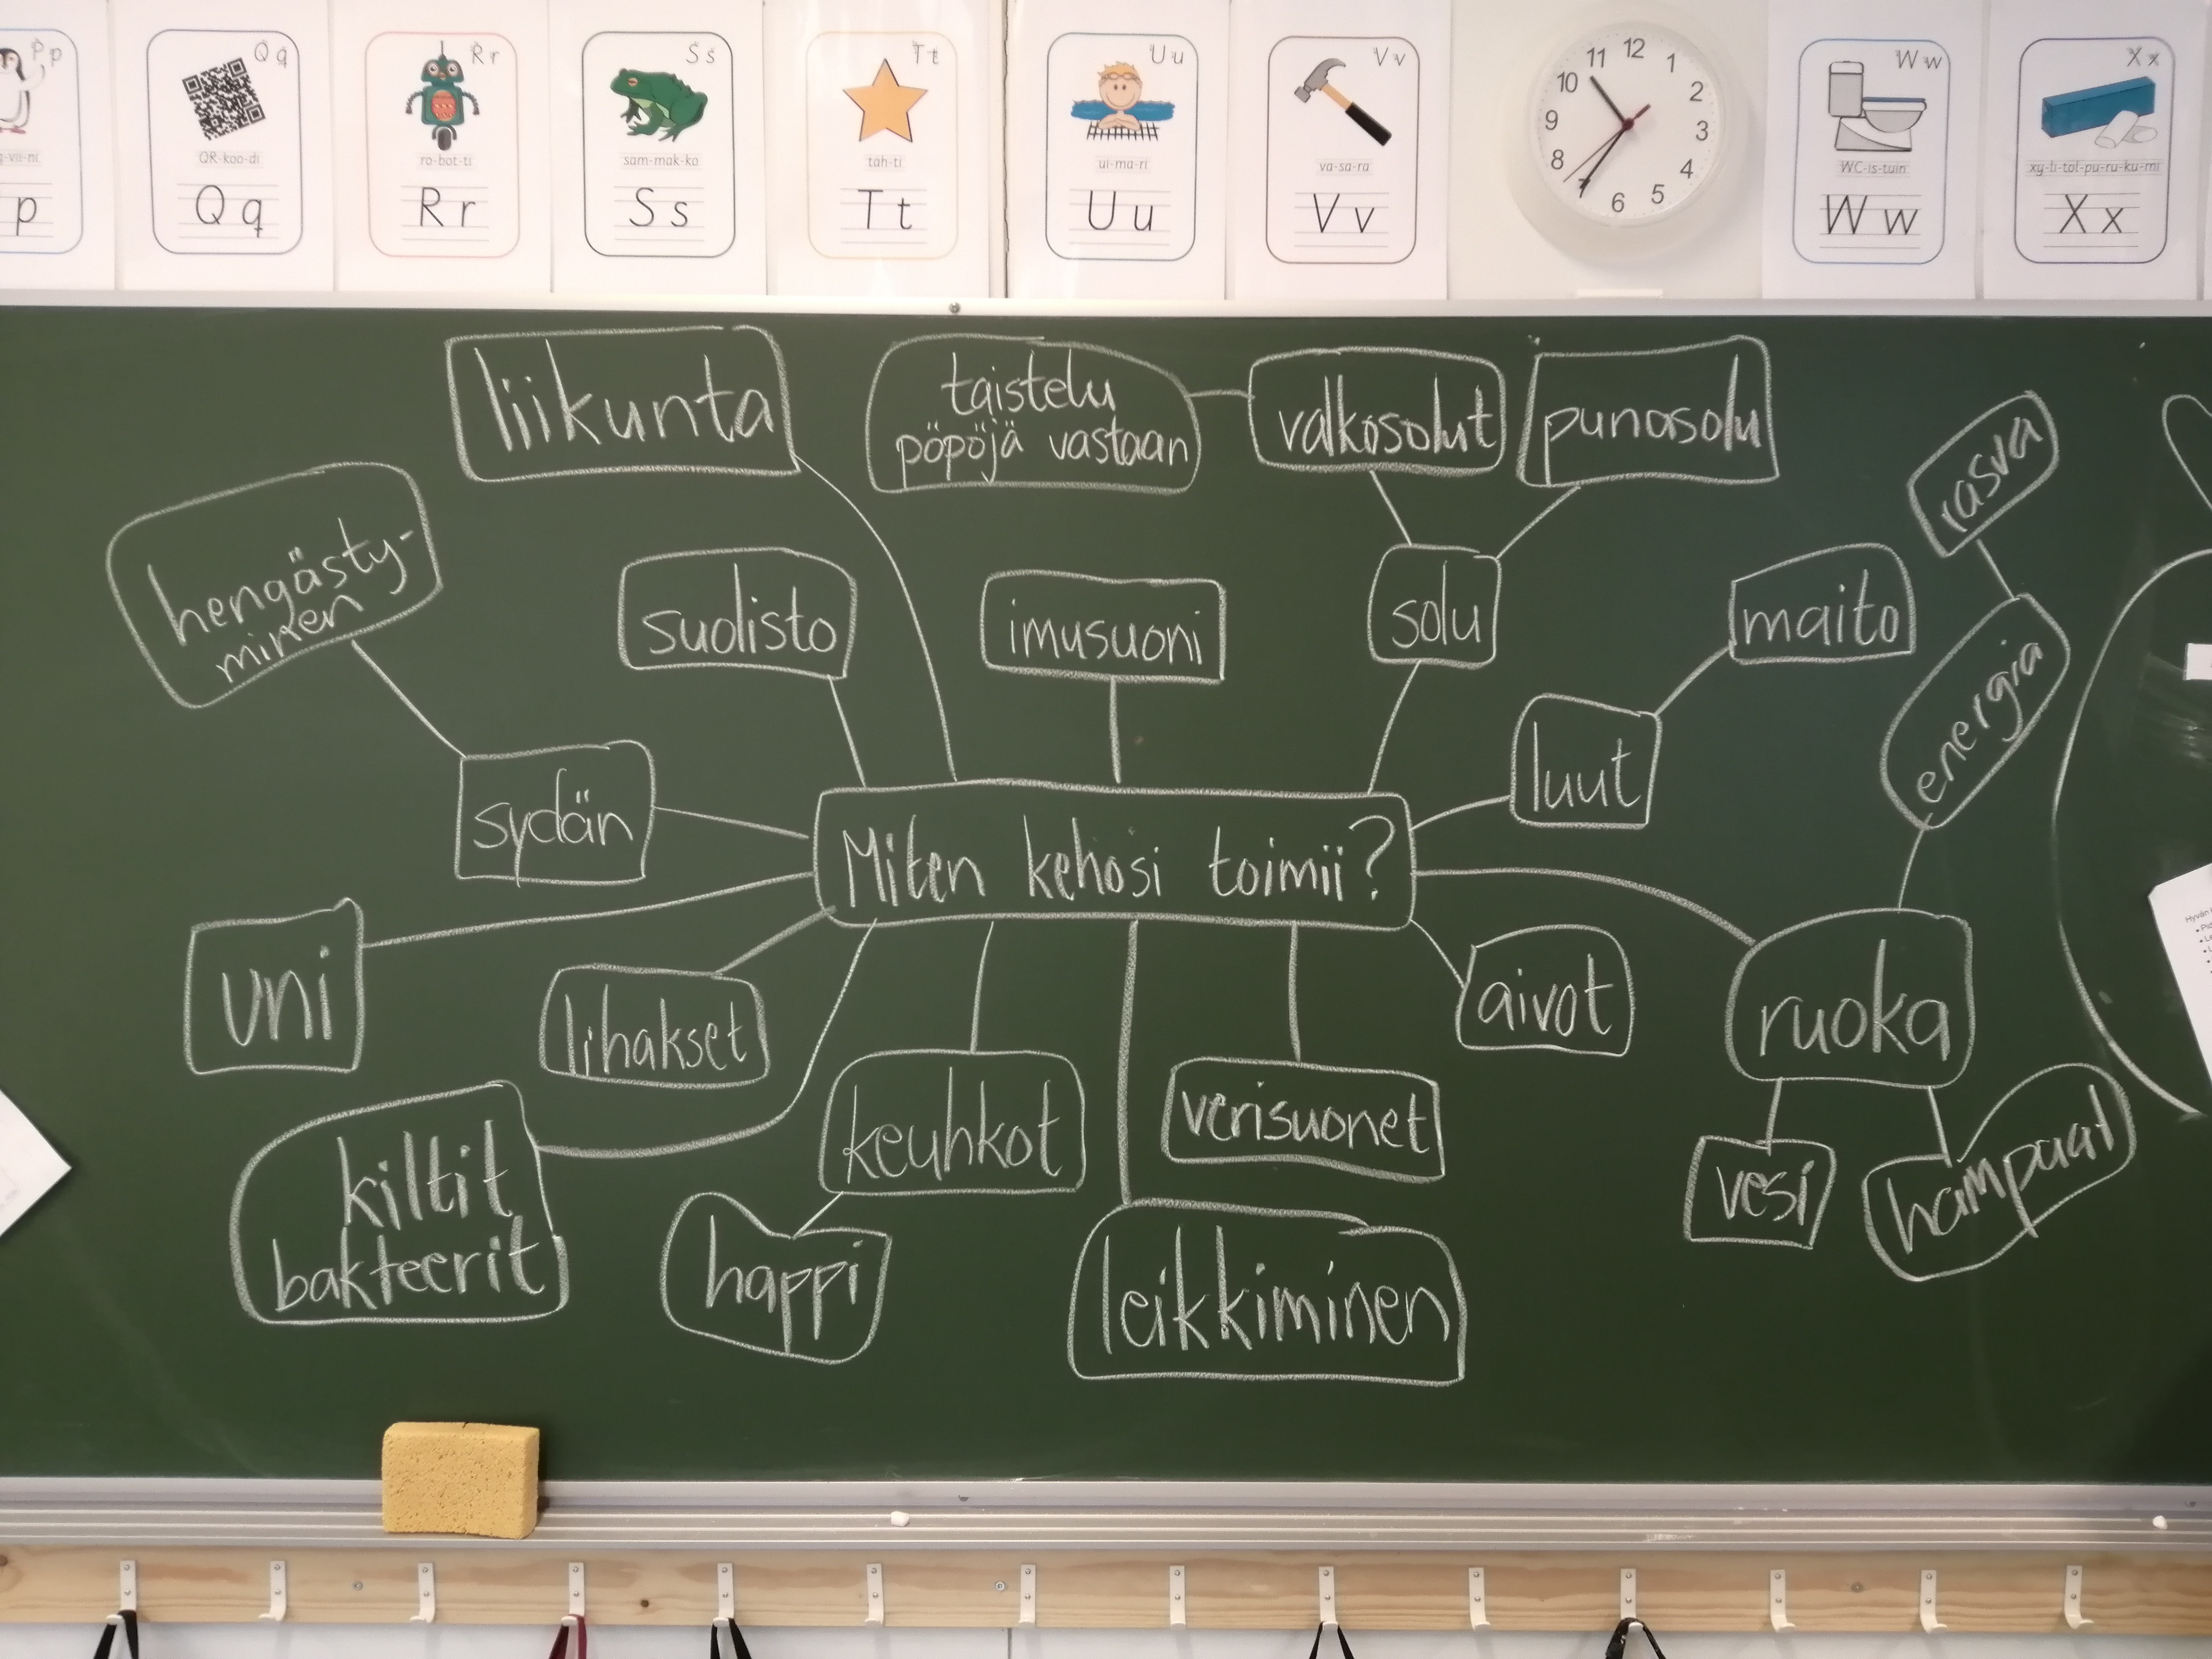 P p
Q q
QR-koo-di
Q q
R r
ro-bot-ti
R r
S s
sam-mak-ko
S s
T t
täh-ti
T t
U u
ui-ma-ri
U u
V v
va-sa-ra
V v
12
1
2
3
4
5
6
7
8
9
10
11
W w
WC-is-tuin
W w
X x
xy-li-tol-pu-ru-ku-mi
X x
p
liikunta
taistelu
pöpöjä vastaan
valkosolut
punasolu
rasva
hengästy-
minen
suolisto
imusuoni
solu
maito
energia
luut
sydän
Miten kehosi toimii?
uni
lihakset
aivot
ruoka
keuhkot
verisuonet
kiltit
bakteerit
happi
leikkiminen
vesi
hampaat